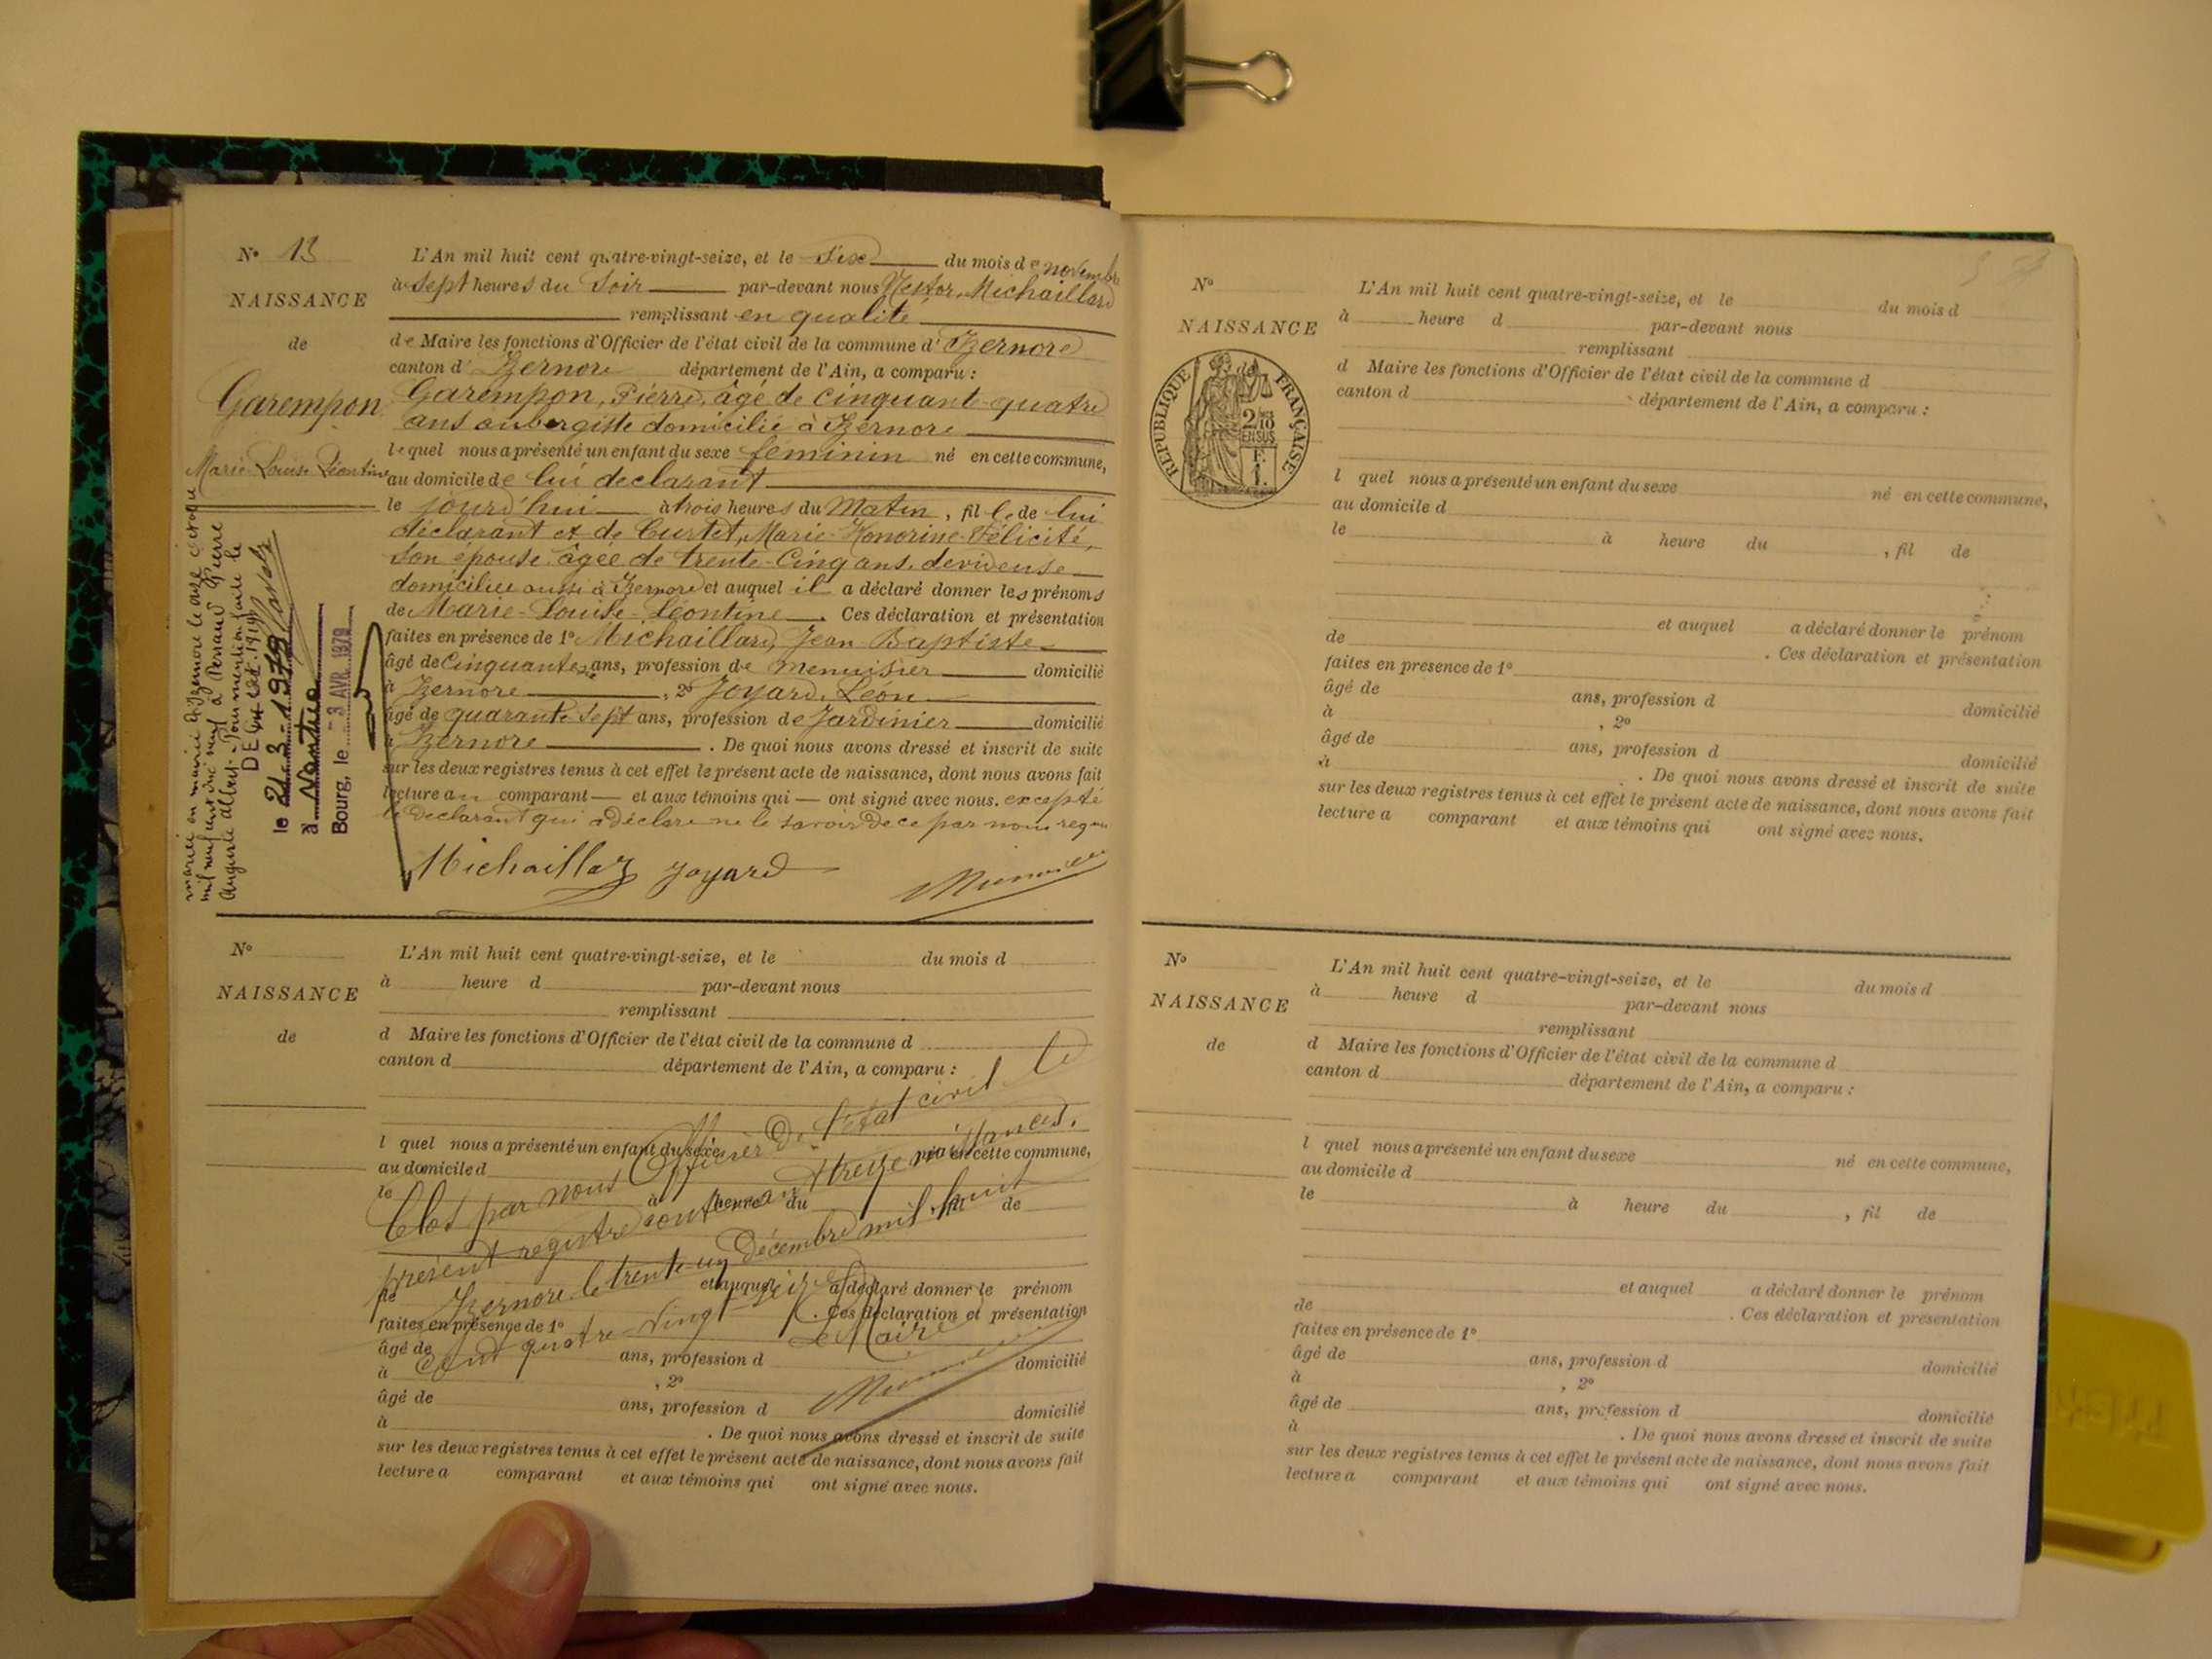 N° 13
NAISSANCE
de
Garempon
Marie Louise Léontine
L'An mil huit cent quatre-vingt-seize, et le Six du mois de novembre
à Sept heures du Soir par-devant nous Nestor, Michaillard
remplissant en qualité
de Maire les fonctions d'Officier de l'état civil de la commune d'Izernore
canton d'Izernore département de l'Ain, a comparu :
Garempon, Pierre, âgé de cinquant-quatre
ans aubergiste domicilié à Izernore
lequel nous a présenté un enfant du sexe féminin né en cette commune,
au domicile de lui declarant
le jourd'hui à trois heures du Matin, fille de lui
déclarant et de Curtet, Marie-Honorine-Félicité,
son épouse âgée de trente-Cinq ans, devideuse
domiciliée aussi à Izernore et auquel il a déclaré donner les prénoms
de Marie-Louise-Léontine. Ces déclaration et présentation
faites en présence de 1° Michaillard, Jean-Baptiste
âgé de Cinquante ans, profession de menuisier domicilié
à Izernore, 2° Joyard, Léon
âgé de quarante sept ans, profession de Jardinier domicilié
à Izernore. De quoi nous avons dressé et inscrit de suite
sur les deux registres tenus à cet effet le présent acte de naissance, dont nous avons fait
lecture au comparant et aux témoins qui ont signé avec nous. excepté
le declarant qui a déclaré ne le savoir de ce par nous requis
Michaillard Joyard
mariée en mairie d'Izernore le onze octobre
mil neuf cent dix neuf à Perraud Pierre
Auguste Albert. Pour mention faite le
oct. 1919
le 21-3-1979
à Nantua
Bourg, le 3 AVR. 1979
N°
NAISSANCE
de
L'An mil huit cent quatre-vingt-seize, et le du mois d
à heure d par-devant nous
remplissant
d Maire les fonctions d'Officier de l'état civil de la commune d
canton d département de l'Ain, a comparu :
l quel nous a présenté un enfant du sexe né en cette commune,
au domicile d
le à heure du , fil de
et auquel a déclaré donner le prénom
de . Ces déclaration et présentation
faites en présence de 1°
âgé de ans, profession d domicilié
à , 2°
âgé de ans, profession d domicilié
à . De quoi nous avons dressé et inscrit de suite
sur les deux registres tenus à cet effet le présent acte de naissance, dont nous avons fait
lecture a comparant et aux témoins qui ont signé avec nous.
Clos par nous Officier de l'état civil le
présent registre contenant treize naissances.
Izernore le trente-un Décembre mil huit
cent quatre-vingt-seize
Le Maire
N°
NAISSANCE
RÉPUBLIQUE FRANÇAISE
2/10
EN SUS
F.
1.
L'An mil huit cent quatre-vingt-seize, et le du mois d
à heure d par-devant nous
remplissant
d Maire les fonctions d'Officier de l'état civil de la commune d
canton d département de l'Ain, a comparu :
l quel nous a présenté un enfant du sexe né en cette commune,
au domicile d
le à heure du , fil de
et auquel a déclaré donner le prénom
de . Ces déclaration et présentation
faites en presence de 1°
âgé de ans, profession d domicilié
à , 2°
âgé de ans, profession d domicilié
à . De quoi nous avons dressé et inscrit de suite
sur les deux registres tenus à cet effet le présent acte de naissance, dont nous avons fait
lecture a comparant et aux témoins qui ont signé avec nous.
N°
NAISSANCE
de
L'An mil huit cent quatre-vingt-seize, et le du mois d
à heure d par-devant nous
remplissant
d Maire les fonctions d'Officier de l'état civil de la commune d
canton d département de l'Ain, a comparu :
l quel nous a présenté un enfant du sexe né en cette commune,
au domicile d
le à heure du , fil de
et auquel a déclaré donner le prénom
de . Ces déclaration et présentation
faites en présence de 1°
âgé de ans, profession d domicilié
à , 2°
âgé de ans, profession d domicilié
à . De quoi nous avons dressé et inscrit de suite
sur les deux registres tenus à cet effet le présent acte de naissance, dont nous avons fait
lecture a comparant et aux témoins qui ont signé avec nous.